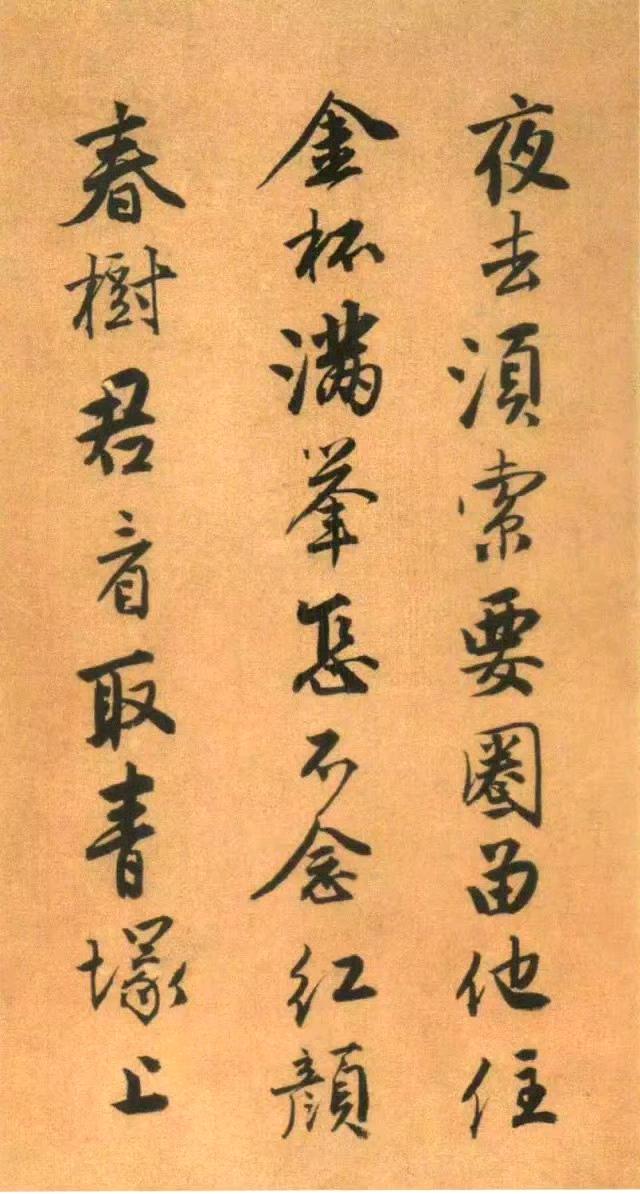 夜去須索要圈留他住
金杯滿举怎不念紅顏
春樹君看取青塚上